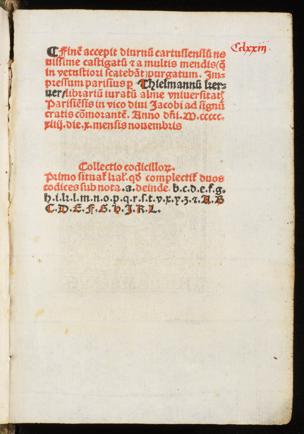 Cclxxiij.
¶ Finē accepit diurnū cartusiensiū no
uissime castigatū ⁊ a multis mendis (q̄
in vetustiori scatebāt) purgatum. Im-
pressum parisius p̱ Thielmannū ker-
uer/librariū iuratū alme vniuersitatꝭ
Parisiēsis in vico diui Jacobi ad signū
cratis cōmorantē. Anno dñi. M.ccccc.
xiiij. die. x. mensis nouembris
Collectio codicilloꝝ.
Primo situaṫ lr̄aꝉ. qđ complectiṫ duos
codices sub nota .a. deinde. b.c.d.e.f.g.
h.i.k.l.m.n.o.p.q.r.s.t.v.x.y.z.⁊. A.B
C.D.E.F.G.H.J.K.L.